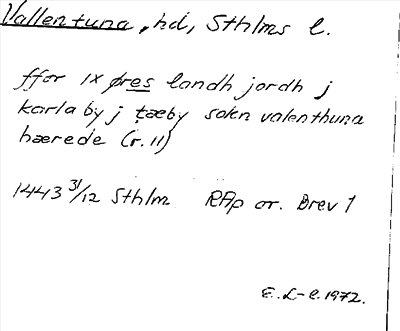 Vallentuna, hd, Sthlms l.
ffor ix øres landh jordh j
karla by j tæby sokn valenthuna
hærede (r. 11)
1443 31/12 Sthlm RAp or. Brev 1
E. L-e. 1972.